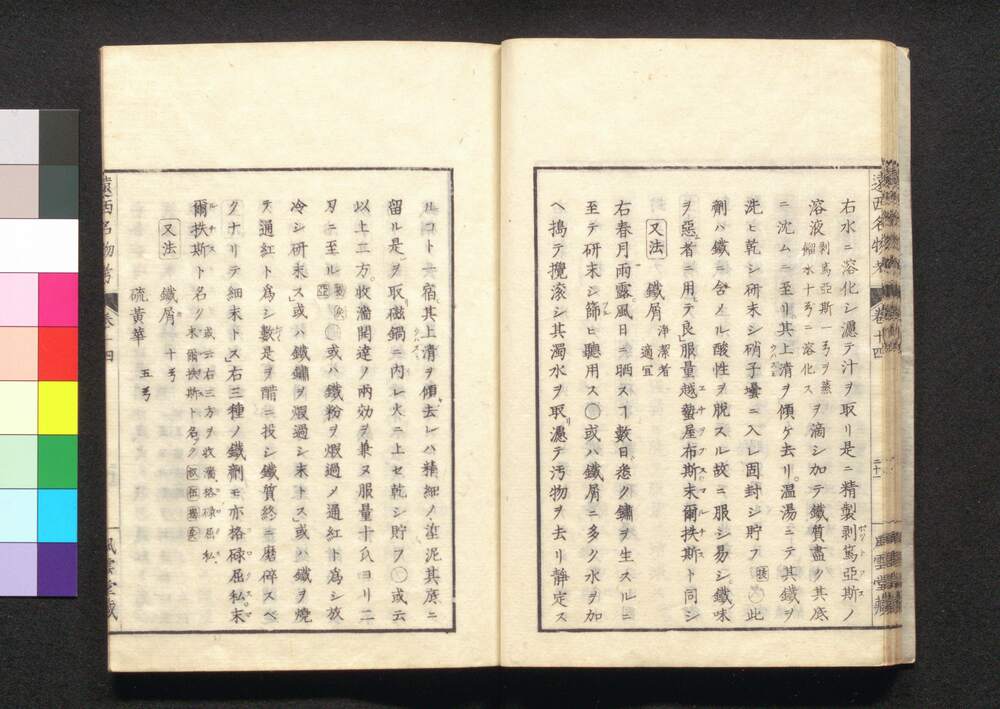 遠西名物考
卷十四
二十一
風雲堂藏
右水ニ溶化シ濾テ汁ヲ取リ是ニ精製剥篤亞斯ノ
溶液 剥篤亞斯一弓ヲ蒸餾水十弓ニ溶化ス ヲ滴シ加テ鐵質盡ク其底
ニ沈ムニ至リ其上清ヲ傾ケ去リ。温湯ニテ其鐵ヲ
洗ヒ乾シ研末シ硝子壜ニ入レ固封シ貯フ 此
劑ハ鐵ニ含メル酸性ヲ脱スル故ニ服シ易シ。鐵味
ヲ惡者ニ用テ良」服量越蟄屋布斯末爾扶斯ト同シ
又法 鐵屑 浄潔者適宜
右春月雨露風日ニ晒スコ數日悉ク鏽ヲ生スルニ
至テ研末シ篩ヒ聽用ス〇或ハ鐵屑ニ多ク水ヲ加
ヘ搗テ攪滾シ其濁水ヲ取リ濾テ汚物ヲ去リ静定ス
ルコト一宿、其上清ヲ傾去レハ精細ノ渣泥其底ニ
留ル是ヲ取リ磁鍋ニ内レ火ニ上セ乾シ貯フ〇或云
以上二方。收濇開達ノ兩効ヲ兼ヌ服量十氏ヨリ二
刃ニ至ル 〇或ハ鐵粉ヲ煆過メ通紅ト爲シ放
冷シ研末ス」或ハ鐵鏽ヲ煆過シ末トス」或ハ鐵ヲ燒
テ通紅ト爲シ數是ヲ醋ニ投シ鐵質終ニ磨碎スベ
クナリテ細末トス」右三種ノ鐵劑モ亦格碌屈私。末
爾扶斯ト名ク 或云右三方ヲ收濇格碌屈私、末爾扶斯ト名ク
又法 鐵屑 十弓
硫黄華 五弓
遠西名物考
卷十四
風雲堂藏